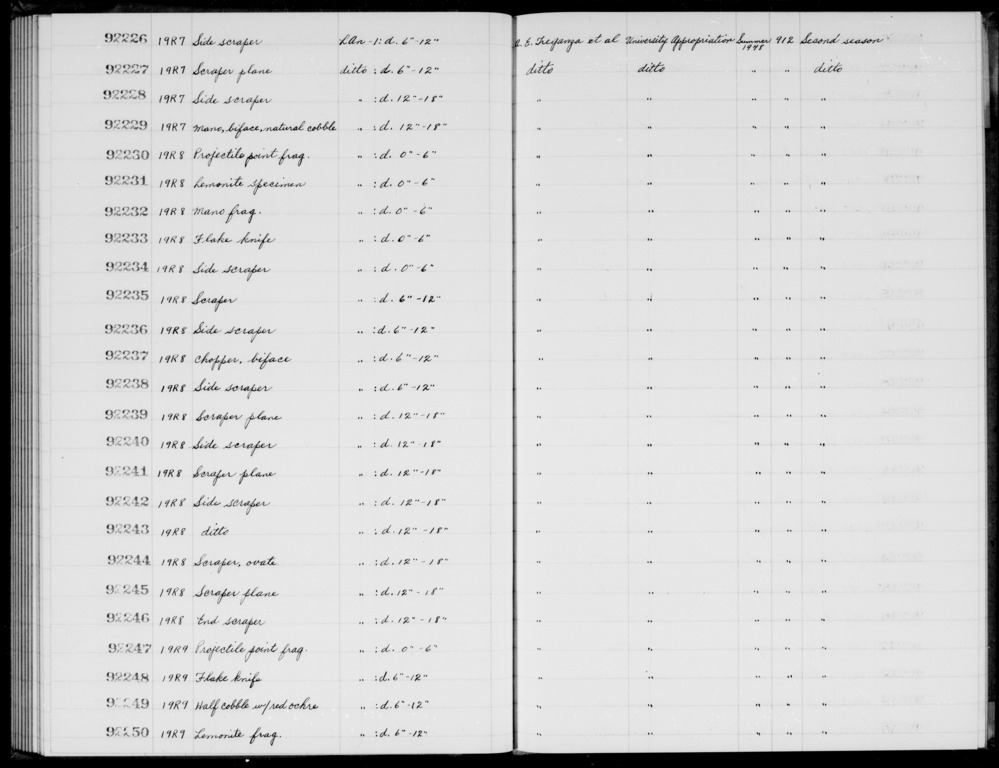 92226 19R7 Side scraper LAn-1:d. 6"-12" A. E. Treganza et al University Appropriation Summer 1948 912 Second season
92227 19R7 Scraper plane ditto :d. 6"-12" ditto ditto " " ditto
92228 19R7 Side scraper " :d. 12"-18" " " " " "
92229 19R7 Mano, biface, natural cobble " :d. 12"-18" " " " " "
92230 19R8 Projectile point frag. " :d. 0"-6" " " " " "
92231 19R8 Lemonite specimen " :d. 0"-6" " " " " "
92232 19R8 Mano frag. " :d. 0"-6" " " " " "
92233 19R8 Flake knife " :d. 0"-6" " " " " "
92234 19R8 Side scraper " :d. 0"-6" " " " " "
92235 19R8 Scraper " :d. 6"-12" " " " " "
92236 19R8 Side scraper " :d. 6"-12" " " " " "
92237 19R8 Chopper, biface " :d. 6"-12" " " " " "
92238 19R8 Side scraper " :d. 6"-12" " " " " "
92239 19R8 Scraper plane " :d. 12"-18" " " " " "
92240 19R8 Side scraper " :d. 12"-18" " " " " "
92241 19R8 Scraper plane " :d. 12"-18" " " " " "
92242 19R8 Side scraper " :d. 12"-18" " " " " "
92243 19R8 ditto " :d. 12"-18" " " " " "
92244 19R8 Scraper, ovate " :d. 12"-18" " " " " "
92245 19R8 Scraper plane " :d. 12"-18" " " " " "
92246 19R8 End scraper " :d. 12"-18" " " " " "
92247 19R9 Projectile point frag. " :d. 0"-6" " " " " "
92248 19R9 Flake knife " :d. 6"-12" " " " " "
92249 19R9 Half cobble w/red ochre " :d. 6"-12" " " " " "
92250 19R9 Lemonite frag. " :d. 6"-12" " " " " "